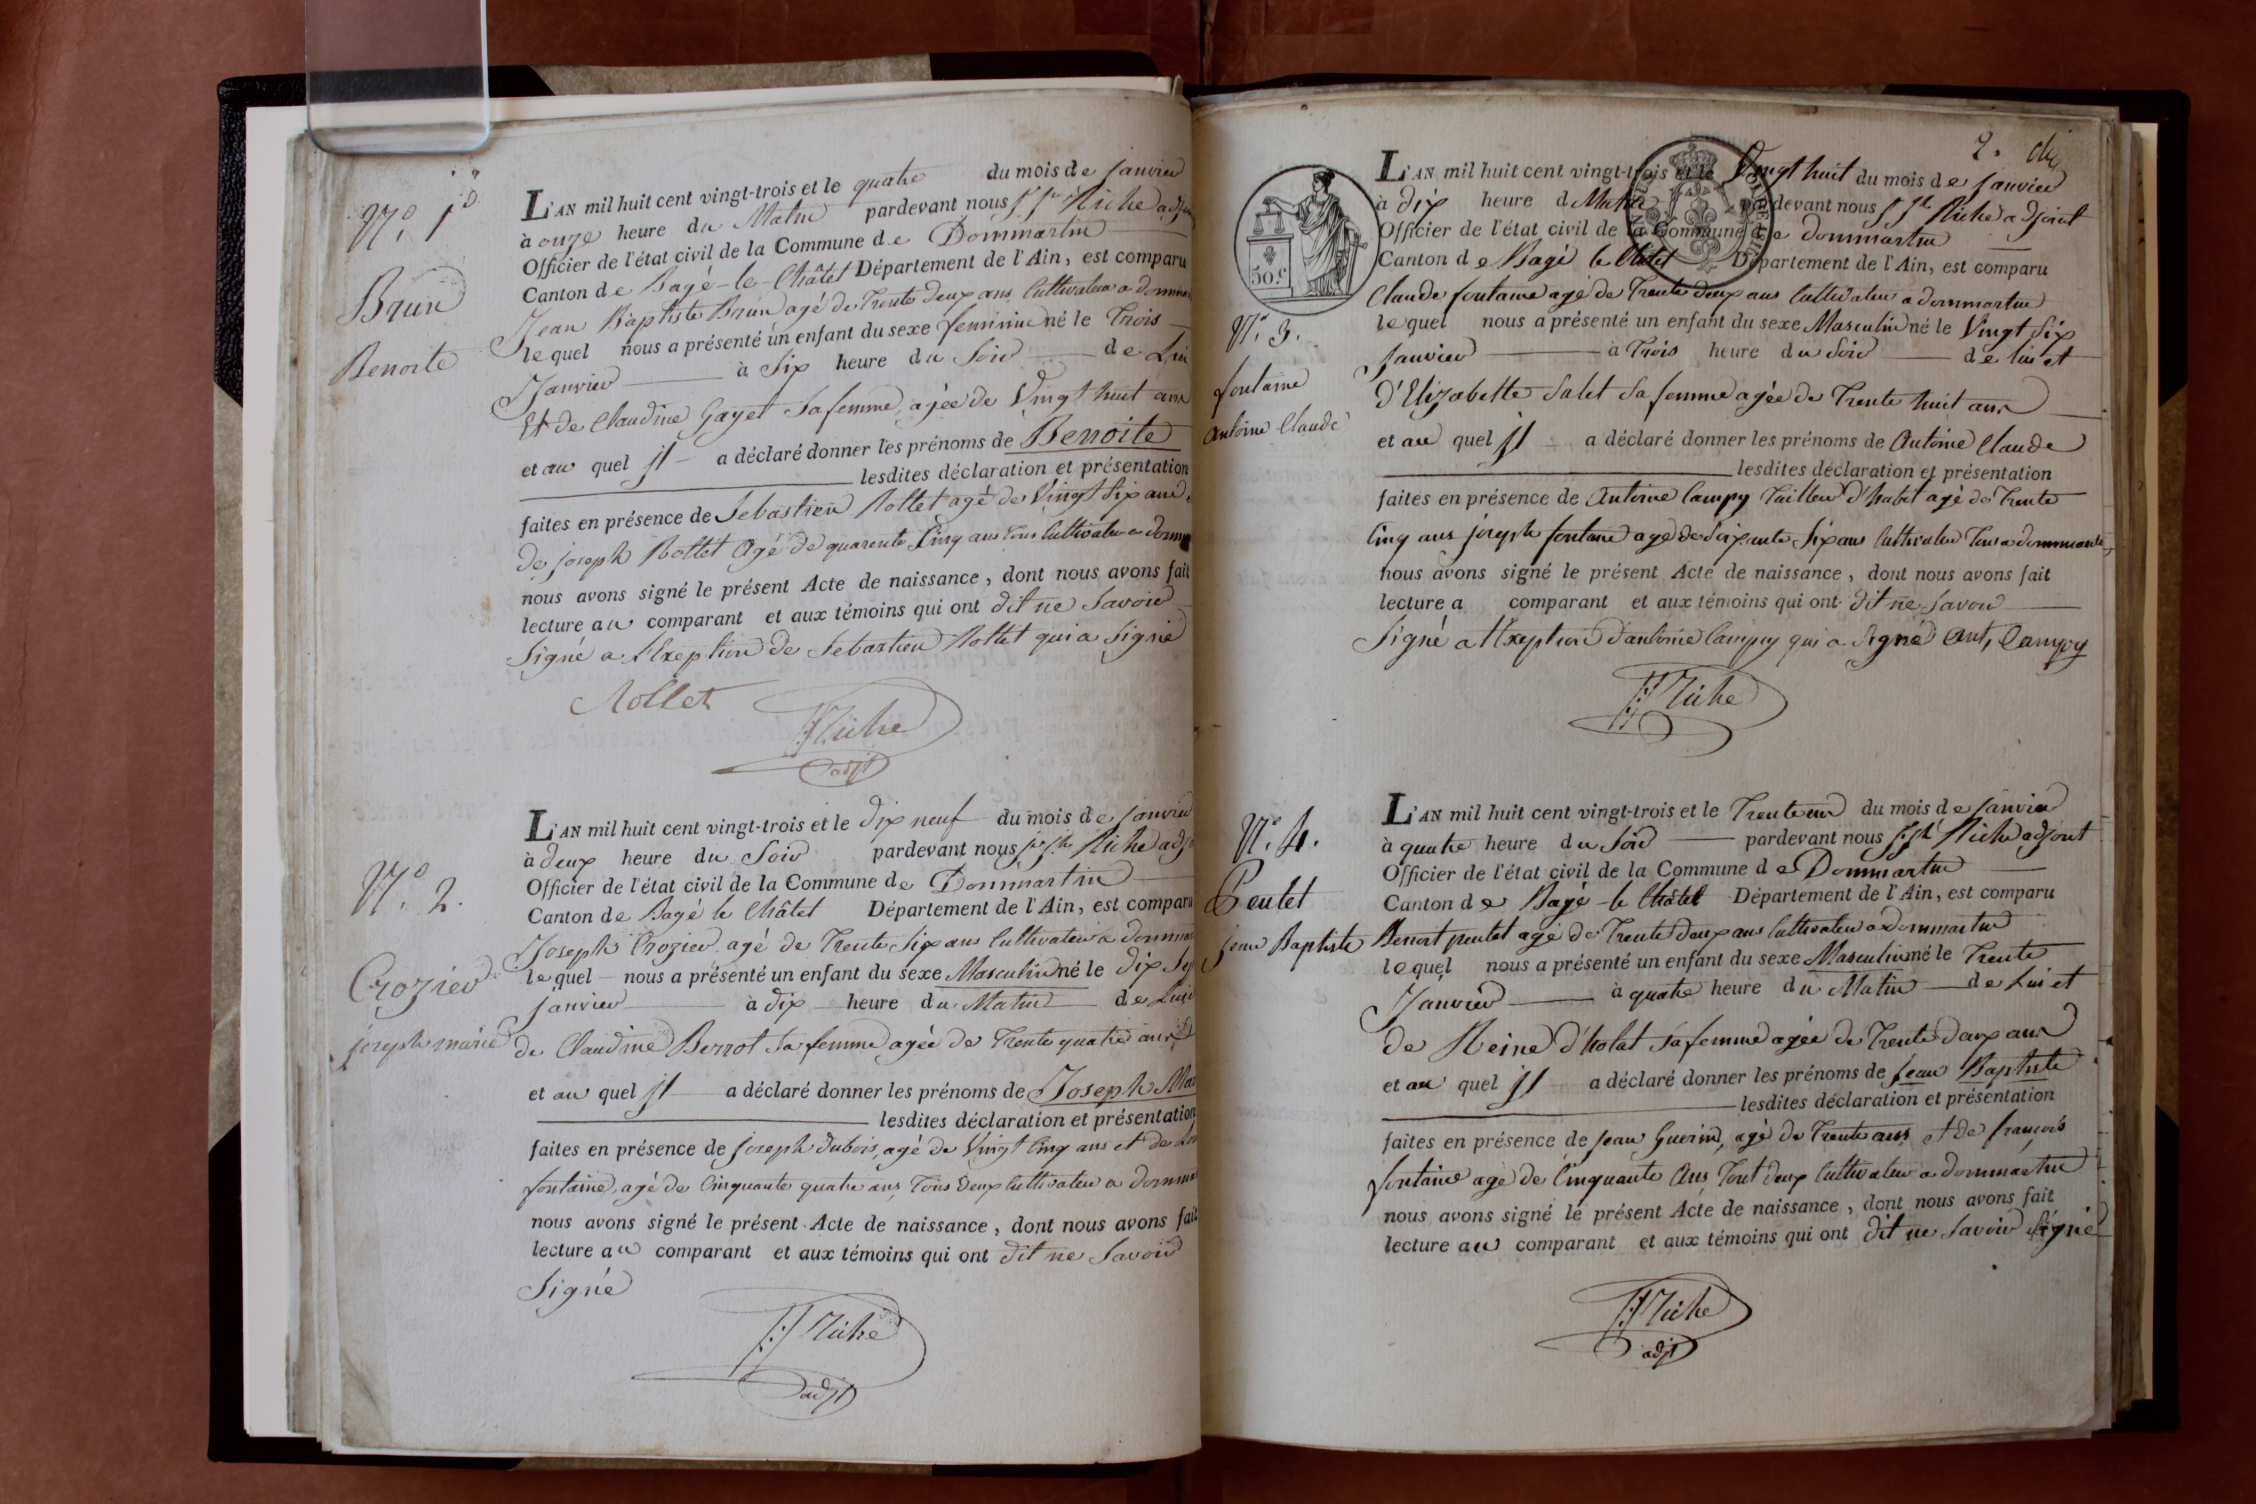 N.º 1.er
Brun
Benoite
L'AN mil huit cent vingt-trois et le quatre du mois de janvier
à onze heure du Matin pardevant nous Jph Riche adjoin
Officier de l'état civil de la Commune de Dommartin
Canton de Bagé-le-Châtel Département de l'Ain, est comparu
Jean Baptiste Brun agé de Trente deux ans Cultivateur a dommar
lequel nous a présenté un enfant du sexe feminine né le Trois
Janvier à Six heure du Soir de Lui
Et de Claudine Gayet sa femme, agée de Vingt huit ans
et au quel jl a déclaré donner les prénoms de Benoite
lesdites déclaration et présentation
faites en présence de Sebastien Rollet agé de Vingt Six ans
de joseph Rollet agé de quarente Cinq ans tous Cultivateur a domm
nous avons signé le présent Acte de naissance, dont nous avons fait
lecture au comparant et aux témoins qui ont dit ne Savoir
Signé a l'Exeption de Sebastien Rollet qui a Signé
Rollet
JRiche
adjt
N.º 2.
Crozier
joseph marie
L'AN mil huit cent vingt-trois et le dix neuf du mois de janvier
à deux heure du Soir pardevant nous jph Riche adjo
Officier de l'état civil de la Commune de Dommartin
Canton de Bagé le Châtel Département de l'Ain, est comparu
Joseph Crozier agé de Trente Six ans Cultivateur a dommar
lequel nous a présenté un enfant du sexe Masculin né le dix Sep
janvier à dix heure du Matin de Lui
de Claudine Berrot sa femme agée de Trente quatre ans
et au quel jl a déclaré donner les prénoms de Joseph Mar
lesdites déclaration et présentation
faites en présence de joseph dubois, agé de Vingt Cinq ans et de
fontaine, agé de Cinquante quatre ans, Tous deux Cultivateur a domma
nous avons signé le présent Acte de naissance, dont nous avons fait
lecture au comparant et aux témoins qui ont dit ne Savoir
Signé
JRiche
adjt
2.
50.c
N.º 3.
fontaine
antoine Claude
L'AN mil huit cent vingt-trois et le Vingt huit du mois de janvier
à dix heure d Matin pardevant nous Jph Riche adjoint
Officier de l'état civil de la Commune de dommartin
Canton de Bagé le Châtel Département de l'Ain, est comparu
Claude fontaine agé de Trente deux ans Cultivateur a dommartin
lequel nous a présenté un enfant du sexe Masculin né le Vingt Six
janvier à Trois heure du Soir de lui et
d'Elizabette Salet Sa femme agée de Trente huit ans
et au quel jl a déclaré donner les prénoms de Antoine Claude
lesdites déclaration et présentation
faites en présence de Antoine Campy Tailleur d'habit agé de Trente
Cinq ans joseph fontaine agé de Soixante Six ans Cultivateur Tous a dommartin
nous avons signé le présent Acte de naissance, dont nous avons fait
lecture a comparant et aux témoins qui ont dit ne Savoir
Signé a l'Exeption d'antoine Campy qui a Signé Ant, Campy
JRiche
N.º 4.
Peulet
jean Baptiste
L'AN mil huit cent vingt-trois et le Trente un du mois de janvier
à quatre heure du Soir pardevant nous Jph Riche adjoint
Officier de l'état civil de la Commune de Dommartin
Canton de Bagé-le Châtel Département de l'Ain, est comparu
Benoit peulet agé de Trente deux ans Cultivateur a dommartin
lequel nous a présenté un enfant du sexe Masculin né le Trente
Janvier à quatre heure du Matin de Lui et
de Reine d'holat Sa femme agée de Trente deux ans
et au quel jl a déclaré donner les prénoms de Jean Baptiste
lesdites déclaration et présentation
faites en présence de jean Guerin, agé de Trente ans et de françois
fontaine agé de Cinquante Ans Tout deux Cultivateur a dommartin
nous avons signé le présent Acte de naissance, dont nous avons fait
lecture au comparant et aux témoins qui ont dit ne Savoir Signé
JRiche
adjt